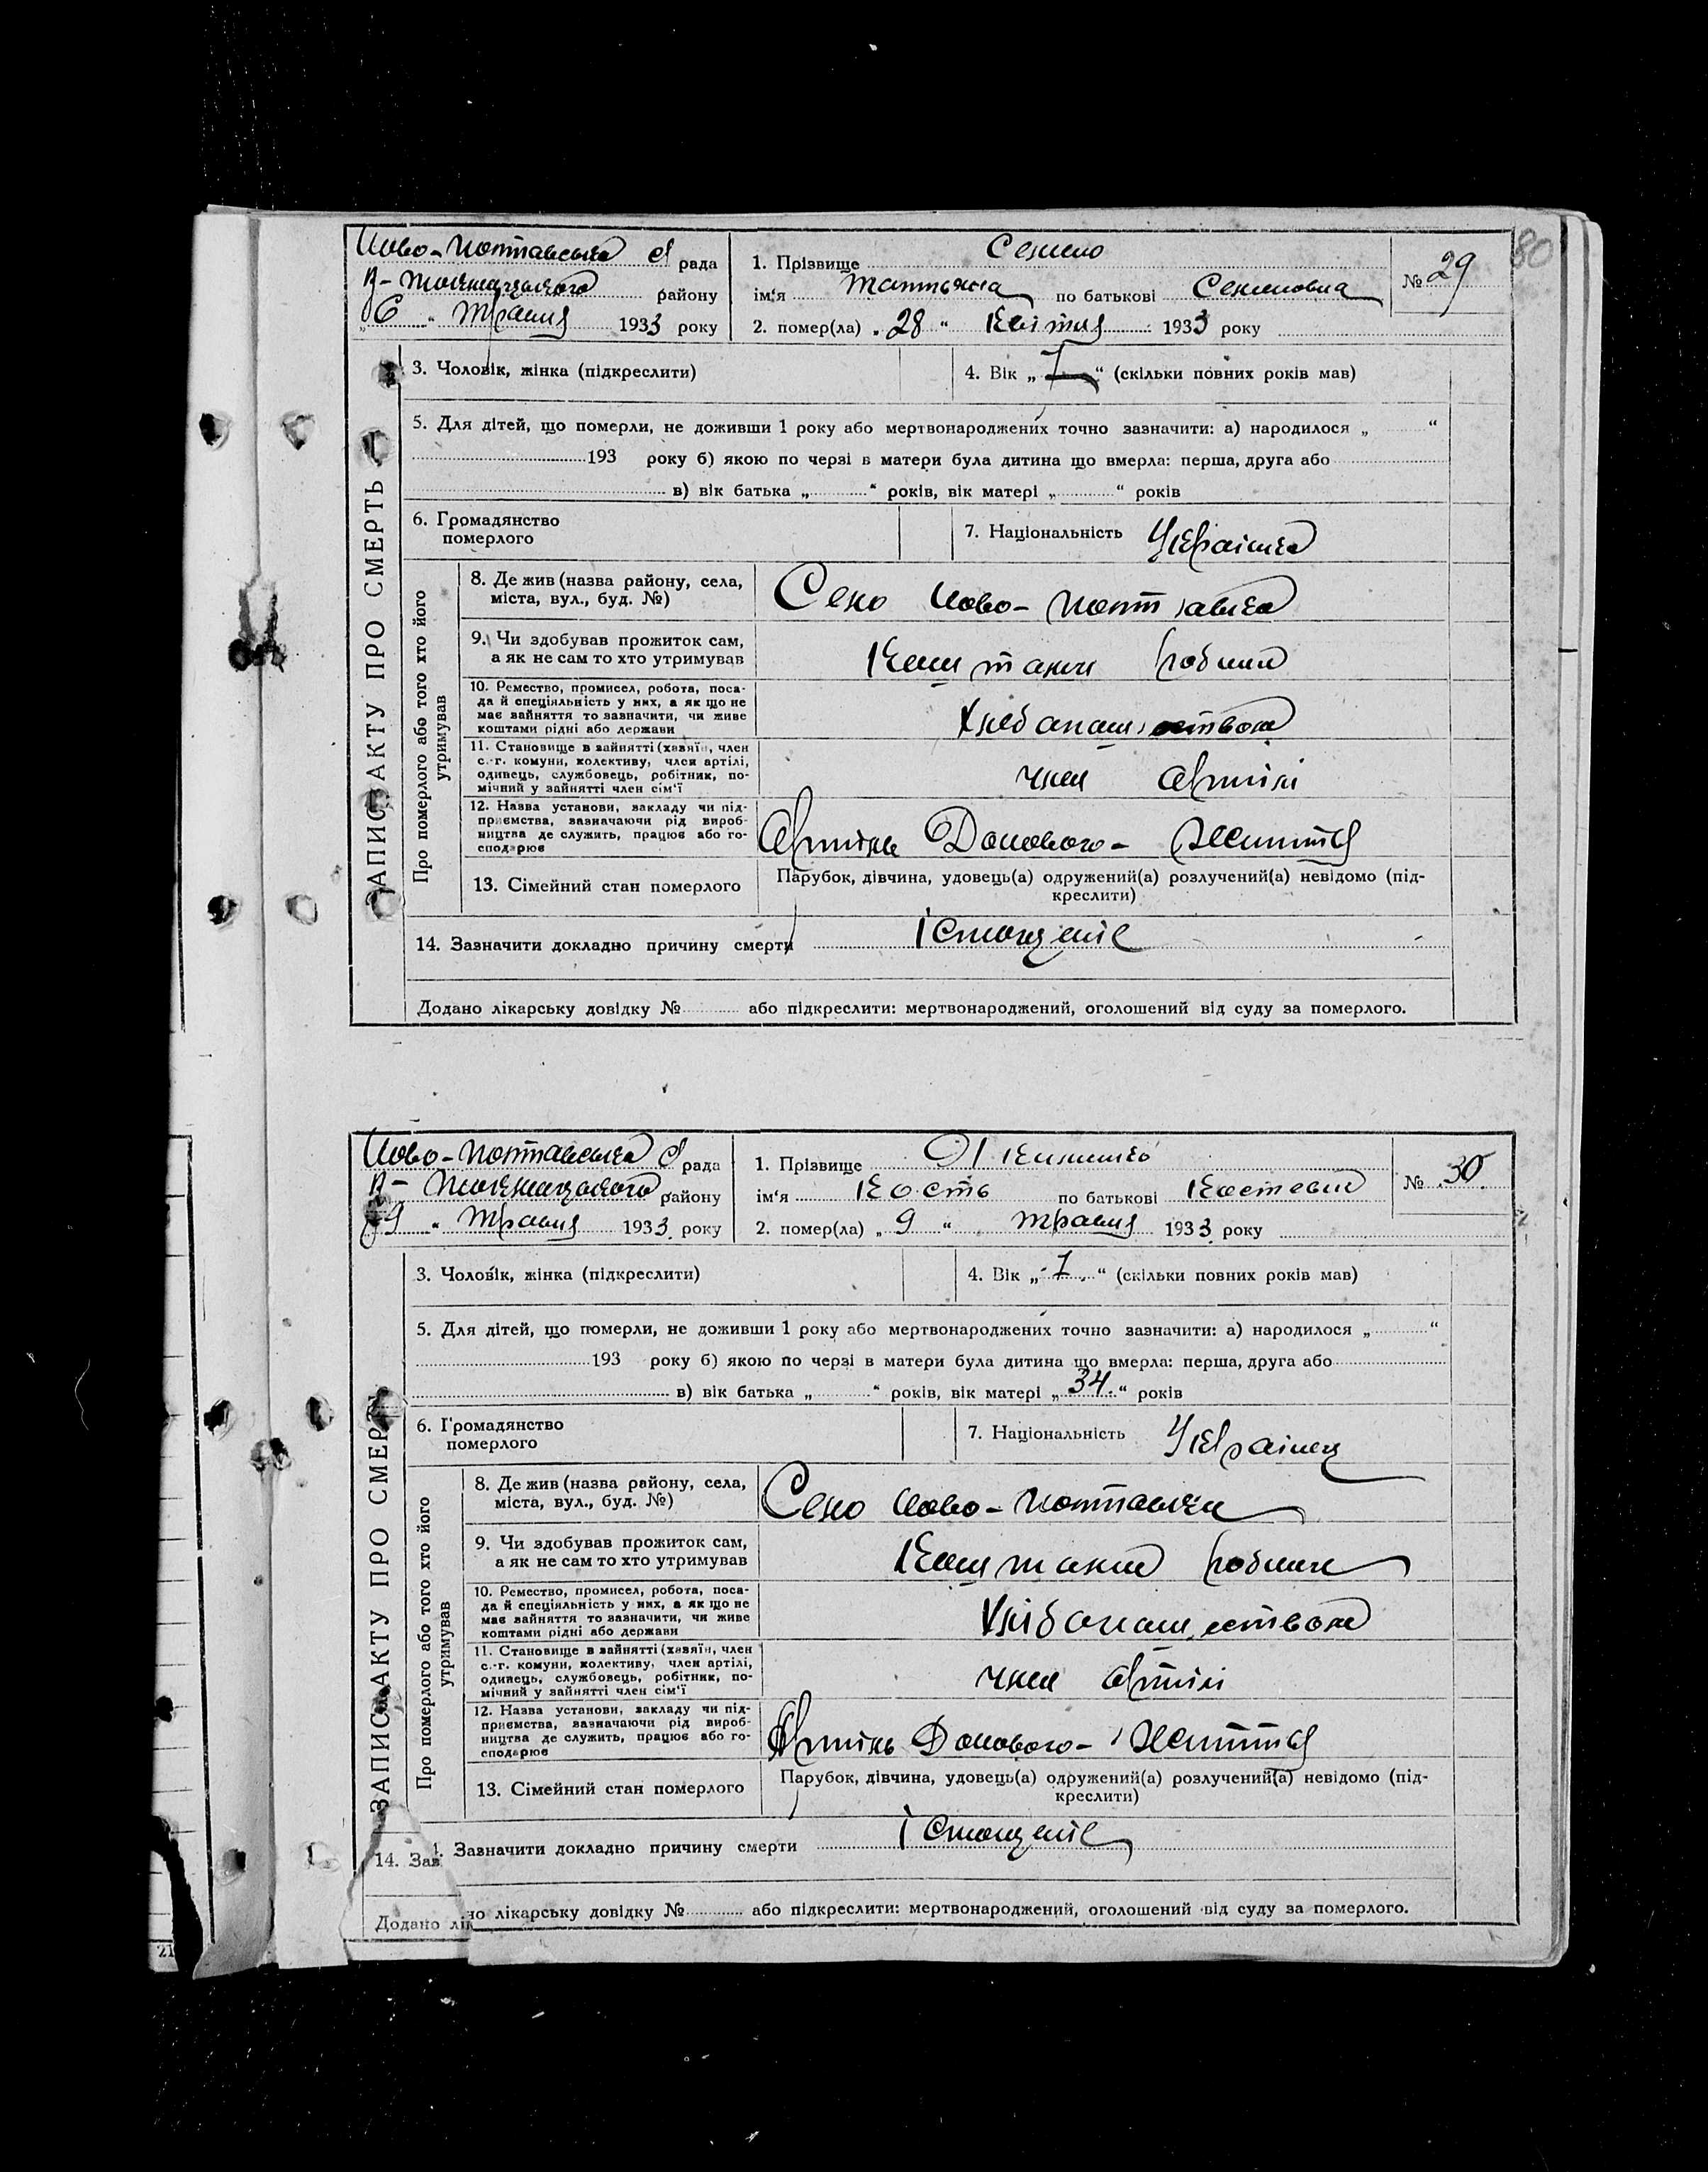 80
Ново-Полтавська с рада
В-Токмацького району
„6“ Травня 1933 року
1. Прізвище
імʼя Таттьяна по батькові Семеновна
2. помер(ла) „28“ Квітня 1933 року
№ 29
ЗАПИС АКТУ ПРО СМЕРТЬ
3. Чоловік, жінка (підкреслити)
4. Вік „1“ (скільки повних років мав)
5. Для дітей, що померли, не доживши 1 року або мертвонароджених точно зазначити: а) народилося „ “
193 року б) якою по черзі в матери була дитина що вмерла: перша, друга або
в) вік батька „ “ років, вік матері „ “ років
6. Громадянство
померлого
7. Національність Українка
Про померлого або того хто його
утримував
8. Де жив (назва району, села,
міста, вул., буд. №)
Село Ново-Полтавка
9. Чи здобував прожиток сам,
а як не сам то хто утримував
Коштами родини
10. Ремество, промисел, робота, поса-
да й спеціяльність у них, а як що не
має зайняття то зазначити, чи живе
коштами рідні або держави
Хлебопашество
11. Становище в зайнятті (хазяїн, член
с.-г. комуни, колективу, член артілі,
одинець, службовець, робітник, по-
мічний у зайнятті член сімʼї
член артілі
12. Назва установи, закладу чи під-
приємства, зазначаючи рід вироб-
ництва де служить, працює або го-
сподарює
Артіль Донового-Життя
13. Сімейний стан померлого
Парубок, дівчина, удовець(а) одружений(а) розлучений(а) невідомо (під-
креслити)
14. Зазначити докладно причину смерти істощеніє
Додано лікарську довідку № або підкреслити: мертвонароджений, оголошений від суду за померлого.
Ново-Полтавська с рада
В-Токмацького району
„9“ Травня 1933 року
1. Прізвище
імʼя Кость по батькові Костевич
2. помер(ла) „9“ травня 1933 року
№ 30
ЗАПИС АКТУ ПРО СМЕРТЬ
3. Чоловік, жінка (підкреслити)
4. Вік „1“ (скільки повних років мав)
5. Для дітей, що померли, не доживши 1 року або мертвонароджених точно зазначити: а) народилося „ “
193 року б) якою по черзі в матери була дитина що вмерла: перша, друга або
в) вік батька „ “ років, вік матері „34“ років
6. Громадянство
померлого
7. Національність Українец
Про померлого або того хто його
утримував
8. Де жив (назва району, села,
міста, вул., буд. №)
Село Ново-Полтавка
9. Чи здобував прожиток сам,
а як не сам то хто утримував
Коштами родини
10. Ремество, промисел, робота, поса-
да й спеціяльність у них, а як що не
має зайняття то зазначити, чи живе
коштами рідні або держави
Хлібопашество
11. Становище в зайнятті (хазяїн, член
с.-г. комуни, колективу, член артілі,
одинець, службовець, робітник, по-
мічний у зайнятті член сімʼї
член артілі
12. Назва установи, закладу чи під-
приємства, зазначаючи рід вироб-
ництва де служить, працює або го-
сподарює
Артіль Донового-Життя
13. Сімейний стан померлого
Парубок, дівчина, удовець(а) одружений(а) розлучений(а) невідомо (під-
креслити)
Зазначити докладно причину смерти істощеніє
14. Заз
но лікарську довідку № або підкреслити: мертвонароджений, оголошений від суду за померлого.
Додано лік
21